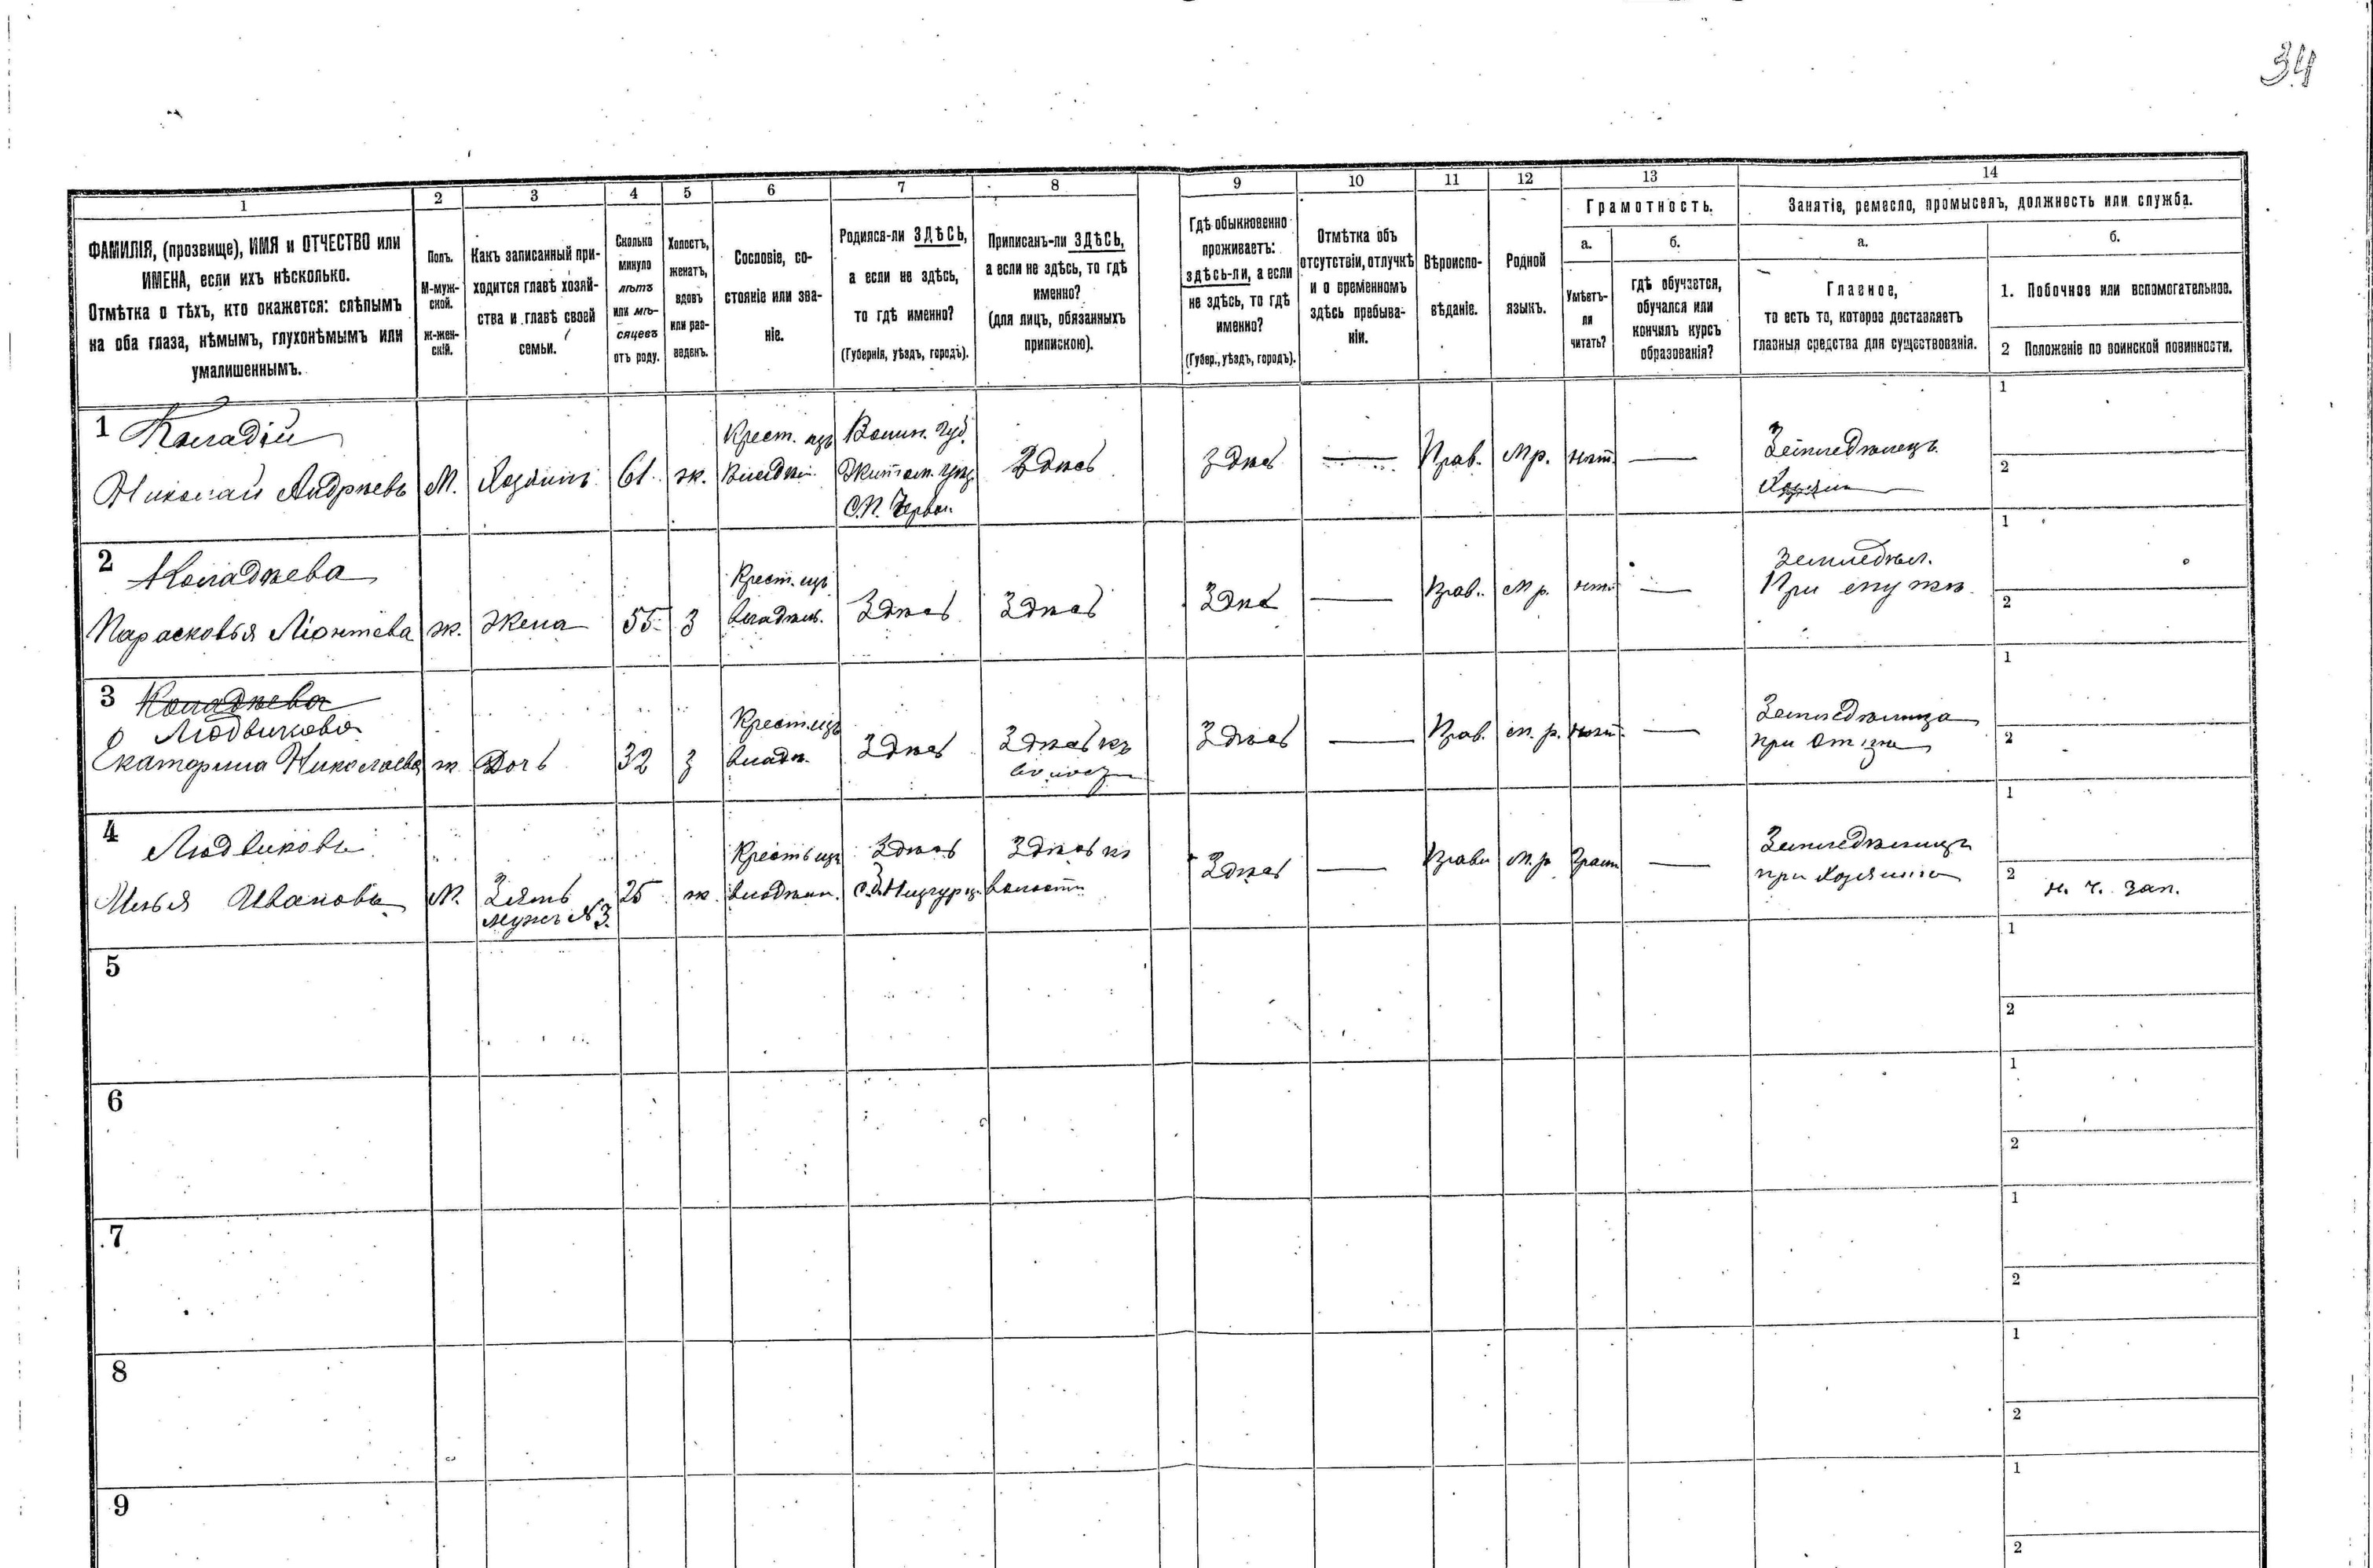 34
1 2 3 4 5 6 7 8 9 10 11 12 13 14
ФАМИЛІЯ, (прозвище), ИМЯ и ОТЧЕСТВО или
ИМЕНА, если ихъ нѣсколько.
Отмѣтка о тѣхъ, кто окажется: слѣпымъ
на оба глаза, нѣмымъ, глухонѣмымъ или
умалишеннымъ.
Полъ.
М-муж-
ской.
ж-жен-
скій.
Какъ записанный при-
ходится главѣ хозяй-
ства и главѣ своей
семьи.
Сколько
минуло
лѣтъ
или мѣ-
сяцевъ
отъ роду.
Холостъ,
женатъ,
вдовъ
или раз-
веденъ.
Сословіе, со-
стояніе или зва-
ніе.
Родился-ли ЗДѢСЬ,
а если не здѣсь,
то гдѣ именно?
(Губернія, уѣздъ, городъ).
Приписанъ-ли ЗДѢСЬ,
а если не здѣсь, то гдѣ
именно?
(для лицъ, обязанныхъ
припискою).
Гдѣ обыкновенно
проживаетъ:
здѣсь-ли, а если
не здѣсь, то гдѣ
именно?
(Губер., уѣздъ, городъ).
Отмѣтка объ
отсутствіи, отлучкѣ
и о временномъ
здѣсь пребыва-
ніи.
Вѣроиспо-
вѣданіе.
Родной
языкъ.
Грамотность.
а.
Умѣетъ-
ли
читать?
б.
гдѣ обучается,
обучался или
кончилъ курсъ
образованія?
Занятіе, ремесло, промыселъ, должность или служба.
а.
Главное,
то есть то, которое доставляетъ
главныя средства для существованія.
б.
1. Побочное или вспомогательное.
2 Положеніе по воинской повинности.
1 Коладій
Николай Андреевъ
М.
Хозяинъ
61.
ж.
Крест. изъ
Владѣл.
Волын. губ.
Житом. уѣз.
Здѣсь
Здѣсь
Прав.
М р.
нѣт.
Земледѣлецъ.
Хозяин
1
2
2 Коладѣева
Парасковья Ліонтева
ж.
Жена
55
З
Крест. изъ
владѣл.
Здѣсь
Здѣсь
Здѣс
Прав.
М р.
нѣт.
Земледѣл.
При мужѣ.
1
2
3 Коладѣева
Людвикова
Екатерина Николаева
ж
Дочь
32
З
Крест. изъ
владѣ.
Здѣсь
Здѣсь къ
Здѣсь
Прав.
м. р.
нѣт.
Земледѣлица
при Отцѣ
1
2
4 Людвиковъ
Илья Ивановъ
М.
Зять
мужъ №3.
25
ж.
Кресть изъ
владѣл.
Здѣсь
Здѣсь къ
волости
Здѣсь
Прав
М. р.
Грам
Земледѣлецъ
при Хозяине
1
2
н. ч. зап.
5
1
2
6
1
2
7
1
2
8
1
2
9
1
2